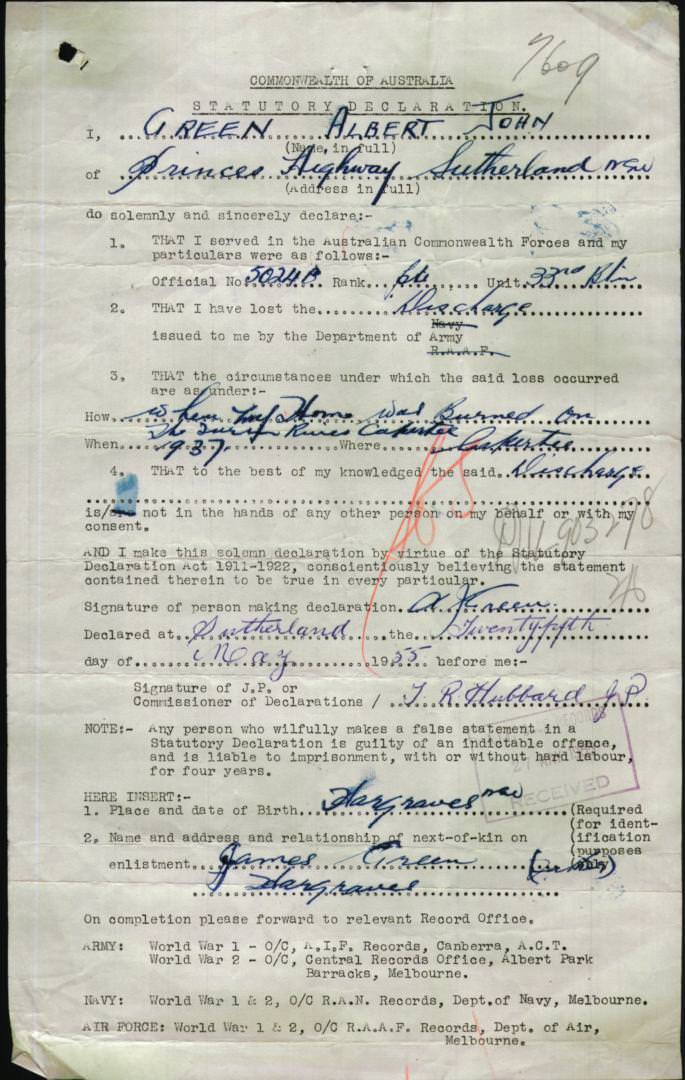 7609
COMMONWEALTH OF AUSTRALIA
STATUTORY DECLARATION.
I, GREEN ALBERT JOHN
(Name in full)
of Princes Highway Sutherland NSW
(Address in full)
do solemnly and sincerely declare:-
1. THAT I served in the Australian Commonwealth Forces and my
particulars were as follows:-
Official No. 5024B Rank. Pte Unit. 33rd Btn
2. THAT I have lost the Discharge
Navy
issued to me by the Department of Army
R.A.A.F.
3. THAT the circumstances under which the said loss occurred
are as under:-
How. When my Home was Burned on
The Turon River Capertee
When 1937. Where Capertee
4. THAT to the best of my knowledged the said Discharge
is/are not in the hands of any other person on my behalf or with my
consent.
AND I make this solemn declaration by virtue of the Statutory
Declaration Act 1911-1922, conscientiously believing the statement
contained therein to be true in every particular.
Signature of person making declaration. A J Green
Declared at Sutherland the Twentyfifth
day of May 1955 before me:-
Signature of J.P. or
Commissioner of Declarations / T. R. Hubbard J.P.
NOTE:- Any person who wilfully makes a false statement in a
Statutory Declaration is guilty of an indictable offence,
and is liable to imprisonment, with or without hard labour,
for four years.
RECEIVED
HERE INSERT:-
1. Place and date of Birth Hargraves NSW (Required
(for ident-
2. Name and address and relationship of next-of-kin on (ification
(purposes
enlistment James Green (only)
Hargraves
On completion please forward to relevant Record Office.
ARMY: World War 1 - O/C, A.I.F. Records, Canberra, A.C.T.
World War 2 - O/C, Central Records Office, Albert Park
Barracks, Melbourne.
NAVY: World War 1 & 2, O/C R.A.N. Records, Dept.of Navy, Melbourne.
AIR FORCE: World War 1 & 2, O/C R.A.A.F. Records, Dept. of Air,
Melbourne.